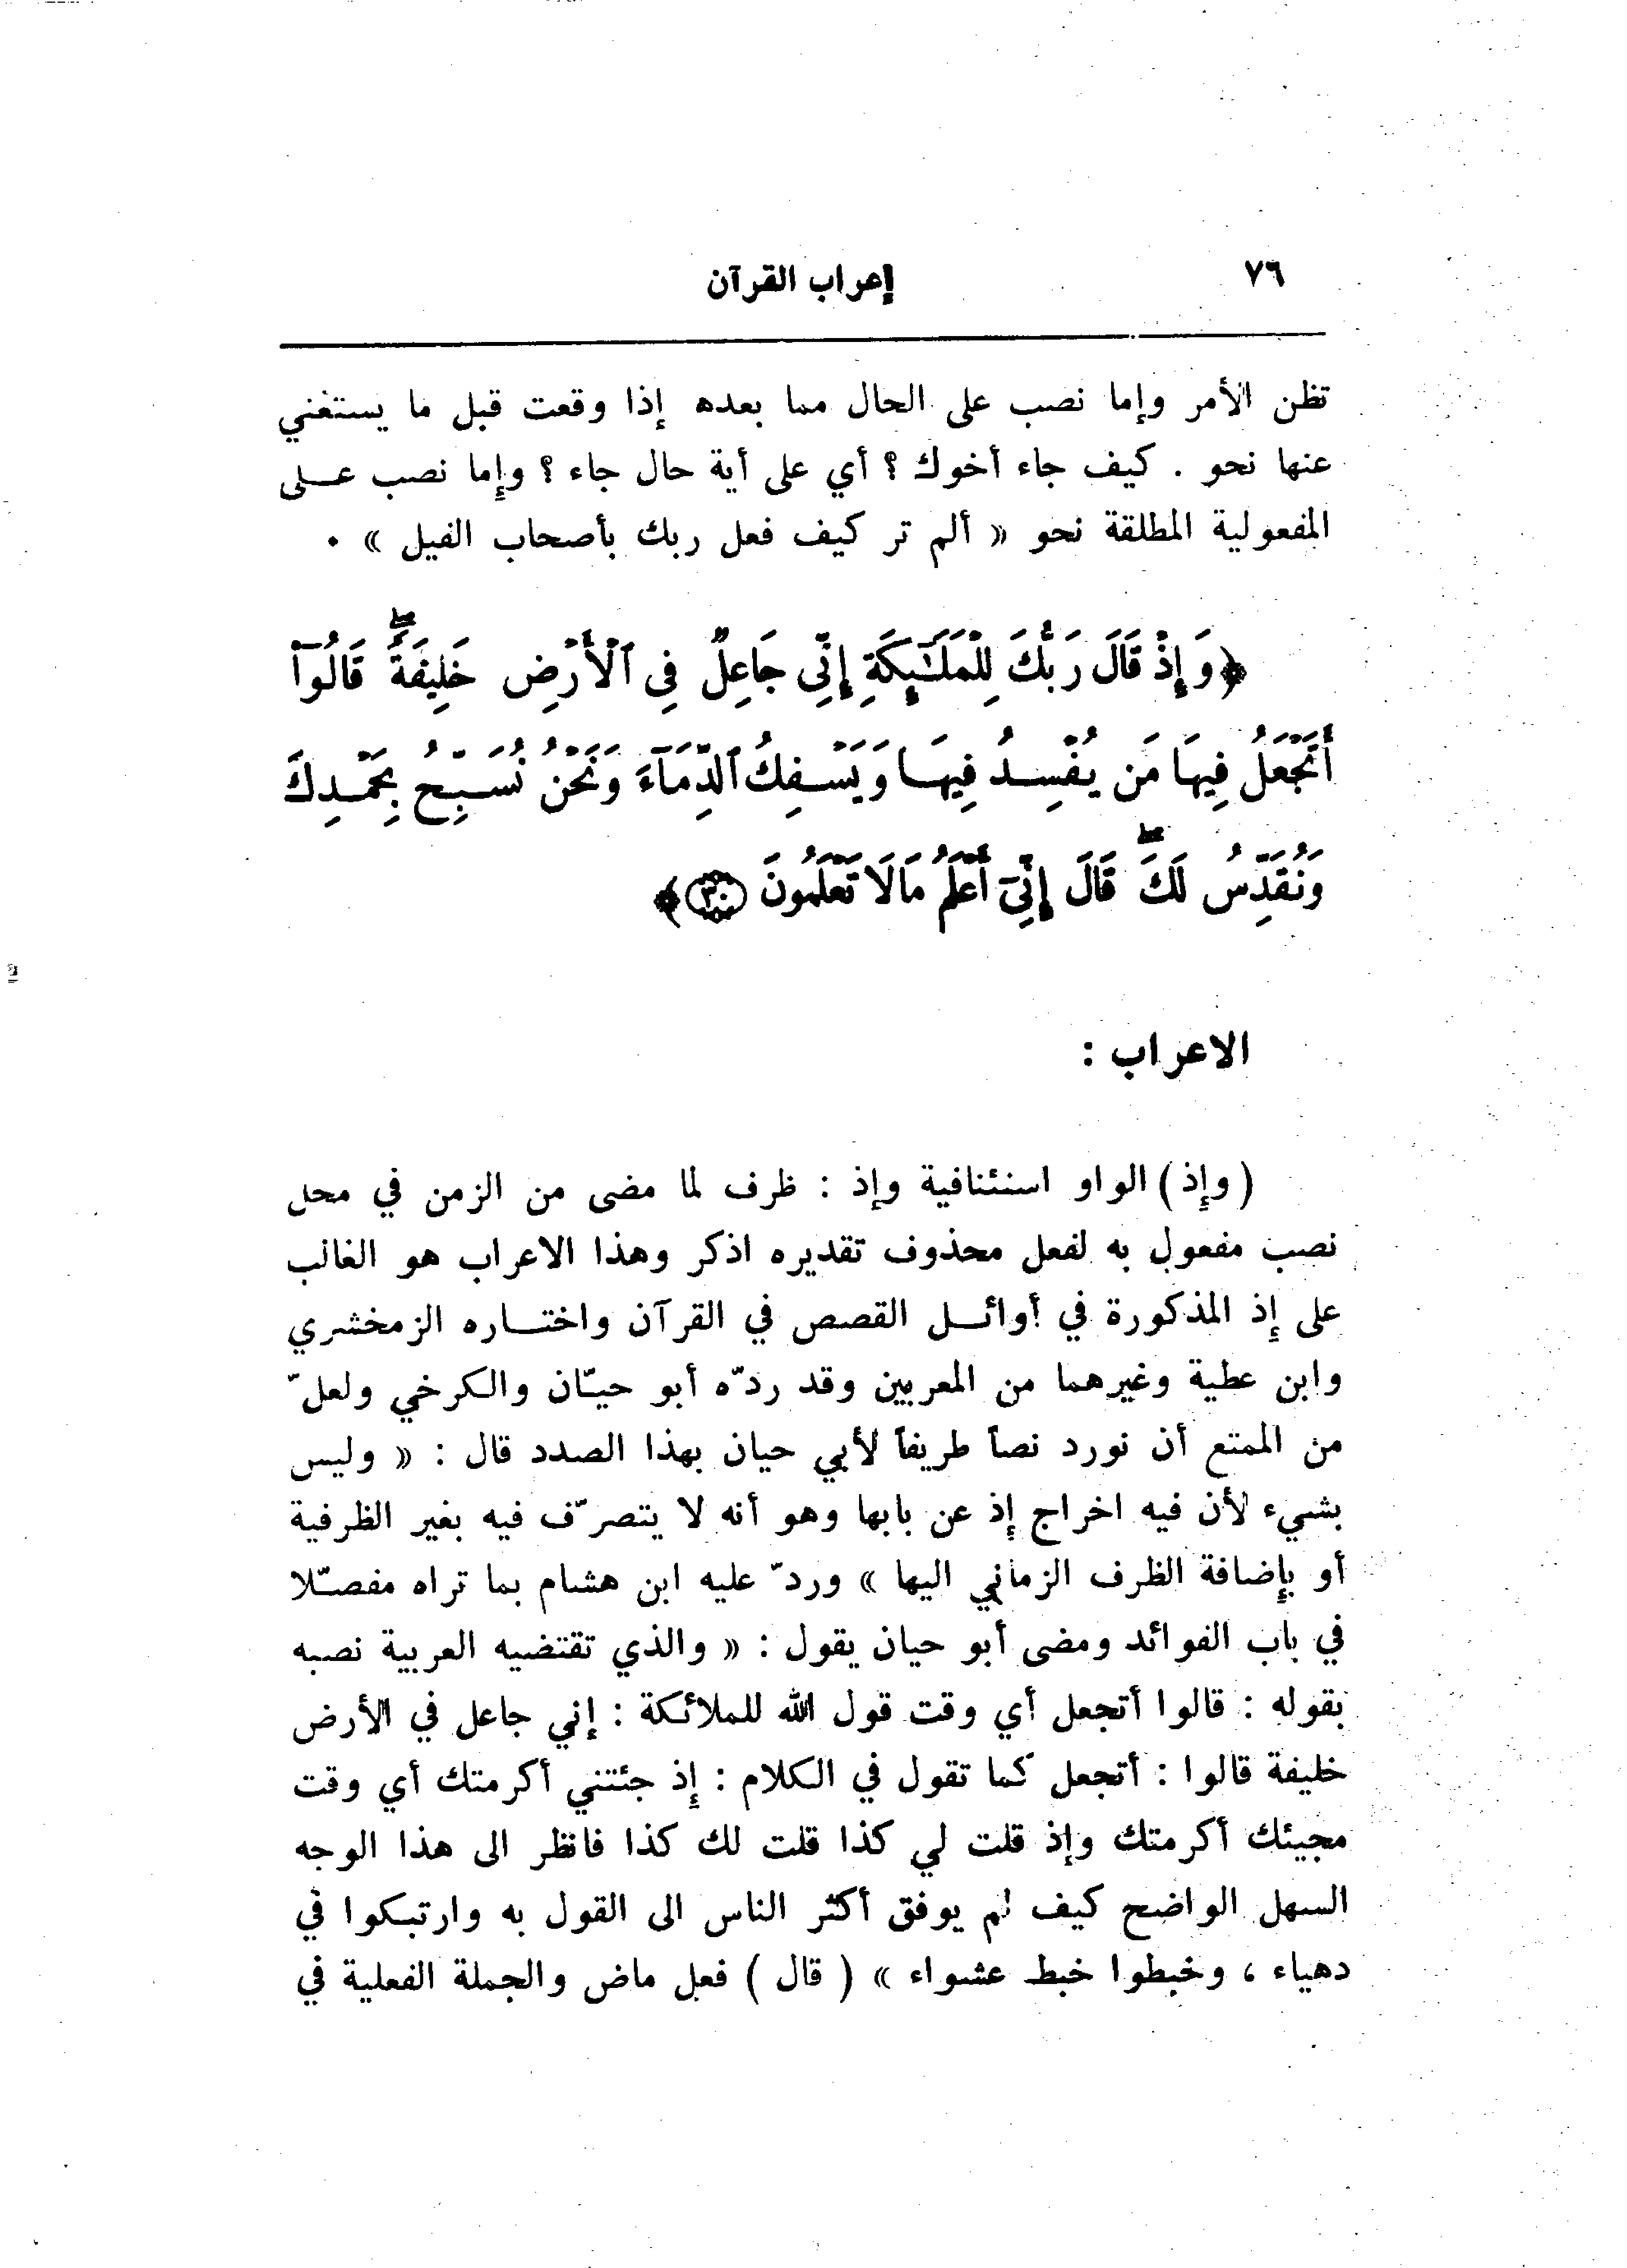 ٧٦ إعراب القرآن
تظن الأمر وإما نصب على الحال مما بعده إذا وقعت قبل ما يستغني
عنها نحو . كيف جاء أخوك ؟ أي على أية حال جاء ؟ وإما نصب عـــلى
المفعولية المطلقة نحو « ألم تر كيف فعل ربك بأصحاب الفيل » ٠
﴿وَإِذْ قَالَ رَبُّكَ لِلْمَلَـٰٓئِكَةِ إِنِّى جَاعِلٌ فِى ٱلْأَرْضِ خَلِيفَةً ۖ قَالُوٓا۟
أَتَجْعَلُ فِيهَا مَن يُفْسِدُ فِيهَا وَيَسْفِكُ ٱلدِّمَآءَ وَنَحْنُ نُسَبِّحُ بِحَمْدِكَ
وَنُقَدِّسُ لَكَ ۖ قَالَ إِنِّىٓ أَعْلَمُ مَا لَا تَعْلَمُونَ ٣٠﴾
الاعراب :
( وإذ ) الواو استئنافية وإذ : ظرف لما مضى من الزمن في محل
نصب مفعول به لفعل محذوف تقديره اذكر وهذا الاعراب هو الغالب
على إذ المذكورة في أوائـــل القصص في القرآن واختـــاره الزمخشري
وابن عطية وغيرهما من المعربين وقد ردّه أبو حيّان والكرخي ولعلّ
من الممتع أن نورد نصاً طريفاً لأبي حيان بهذا الصدد قال : « وليس
بشيء لأن فيه اخراج إذ عن بابها وهو أنه لا يتصرّف فيه بغير الظرفية
أو بإضافة الظرف الزماني اليها » وردّ عليه ابن هشام بما تراه مفصّلا
في باب الفوائد ومضى أبو حيان يقول : « والذي تقتضيه العربية نصبه
بقوله : قالوا أتجعل أي وقت قول الله للملائكة : إني جاعل في الأرض
خليفة قالوا : أتجعل كما تقول في الكلام : إذ جئتني أكرمتك أي وقت
مجيئك أكرمتك وإذ قلت لي كذا قلت لك كذا فانظر الى هذا الوجه
السهل الواضح كيف لم يوفق أكثر الناس الى القول به وارتبكوا في
دهياء ، وخبطوا خبط عشواء » ( قال ) فعل ماض والجملة الفعلية في